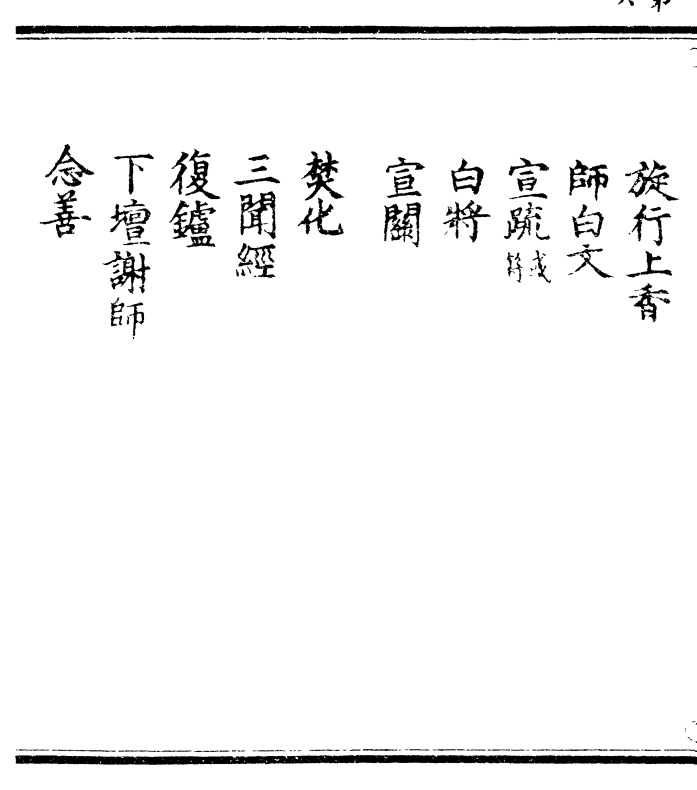 旋行上香
師白文
宣疏或符
白將
宣關
焚化
三聞經
復鑪
下壇謝師
念善